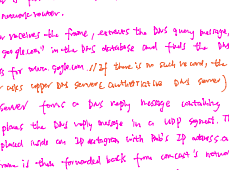 network router.
receives the frame, extracts the DNS query message,
google.com" in the DNS database and finds the DNS
for www.google.com. // If there is no such record, the
asks upper DNS server & authoritative DNS server)
server forms a DNS reply message containing
places the DNS reply message in a UDP segment. T
placed inside an IP datagram with Bob's IP address a
is then forwarded back from comcast's network